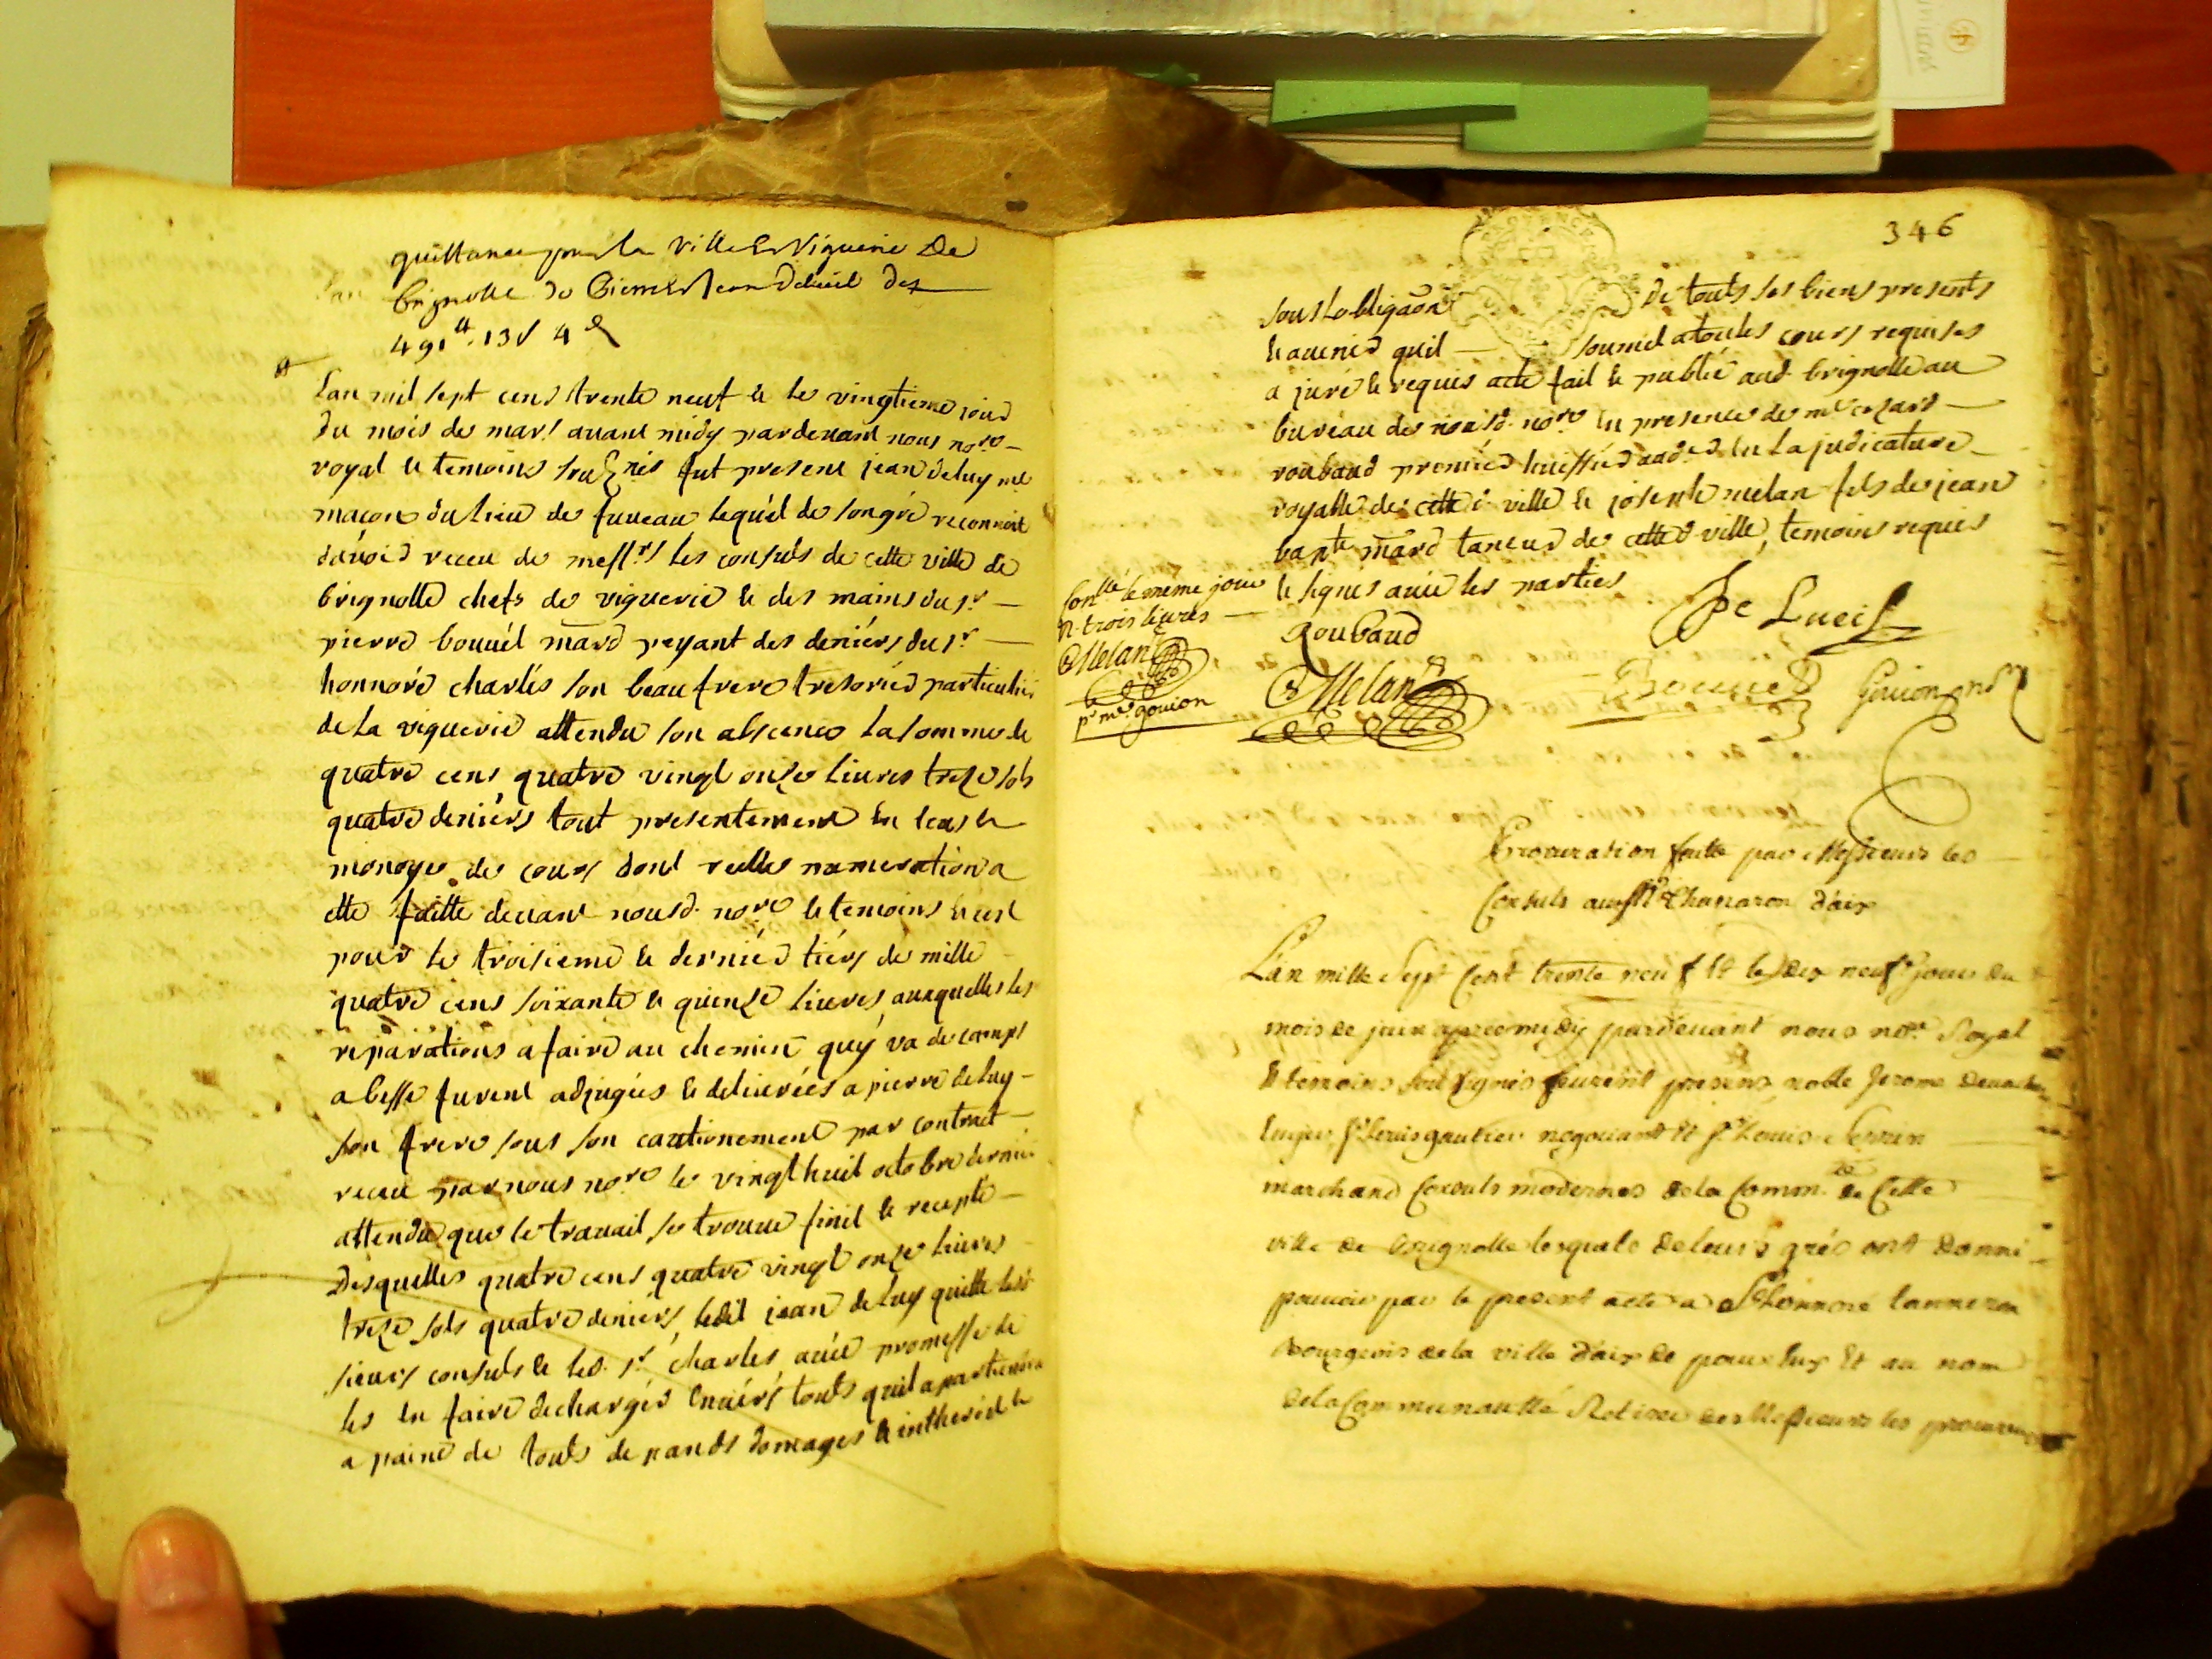 quittance pour la ville & viguerie De
brignolle de Pierre & Jean Deluil des
491ᵗᵗ. 13ˢ 4ᵈ
Lan mil sept cens trente neuf & le vingtieme jour
du mois de mars avant midy pardevant nous noʳᵉ
royal & temoins souᶻnés fut present jean deluy mᵉ
maçon du lieu de fuveau lequel de son gré reconnoit
d'avoir receu de messʳˢ les consuls de cette ville de
brignolle chefs de viguerie & des mains du sʳ
pierre bouuél marᵈ payant des deniérs du sʳ
honnoré charlés son beau frere tresoriér particuliér
de la viguerie attendu son abscence la somme de
quatre cens quatre vingt onze livres treze sols
quatre deniérs tout presentement en
monoye de cours dont reelle numeration a
etté faitte devant nousd. noʳᵉ & temoins & cest
pour le troisieme & derniér tiérs de mille
quatre cens soixante & quinze livres auxquelles les
réparations a faire au chemin quy va de camps
a besse furent adjugées & delivrées a pierre deluy
son frere sous son cautionement par contract
receu par nous noʳᵉ le vingt huit octobre dernier
attendu que le travail se trouve finit & recepté
Desquelles quatre cens quatre vingt onze livres
treze sols quatre deniers, ledit jean deluy quitte lesd.
sieurs consuls & led. sʳ charles avec promesse de
les en faire dechargér envérs touts quil apartiendra
a paine de touts depands domages & intherets &
346
sous lobligaôn de touts ses biens presents
& avenir quil soumet a toutes cours requises
a juré & requis acte fait & publié aud. brignolle au
bureau de nousd. noʳᵉ en presence de mᵉ cezard
roubaud premiér huissiér aud. en la judicature
royalle de cette d. ville & joseph melan fils de jean
bapᵗᵉ marᵈ taneur de cette d. ville, temoins requis
& signés avec les parties
Conᵗˡᵉ le meme jour
R. trois livres
Melan
pʳ mʳ. gouion
Roubaud
Melan
Gouion noʳᵉ
Procuration faitte par Messieurs les
Consuls au sʳ Chanaron d'aix
L'an mille Sept Cent trente neuf Et le dix neuf jour du
mois de juin apres midy pardevant nous noʳᵉ Royal
& temoins Soussignés feurent presens noble Jerome
Sʳ Louis gautier negociant Et Sʳ Louis Perrin
marchand Consuls modernes de la Comm.ᵗᵉ de Cette
ville de brignolle lesquels de leurs grés ont donné
pouvoir par le present acte a Sʳ honnoré
bourgeois de la ville d'aix de pour Eux Et au nom
de la Communautté Retirer des Messieurs les procureurs